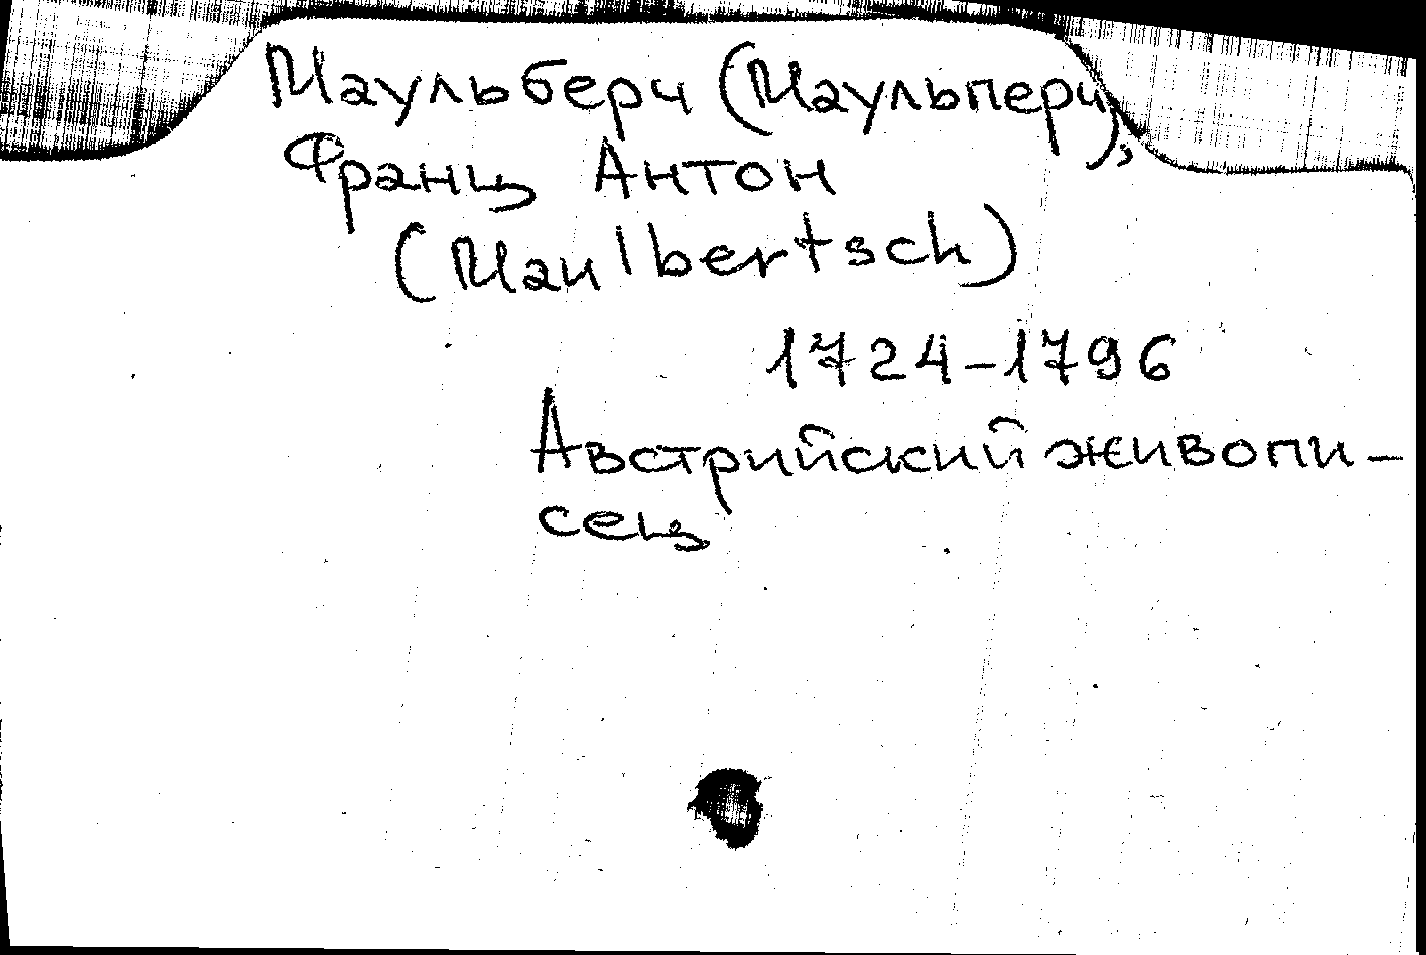 Маульберч (Маульперч),
Франц Антон
(Maulbertsch)
1724-1796
Австрийский живопи-
сец